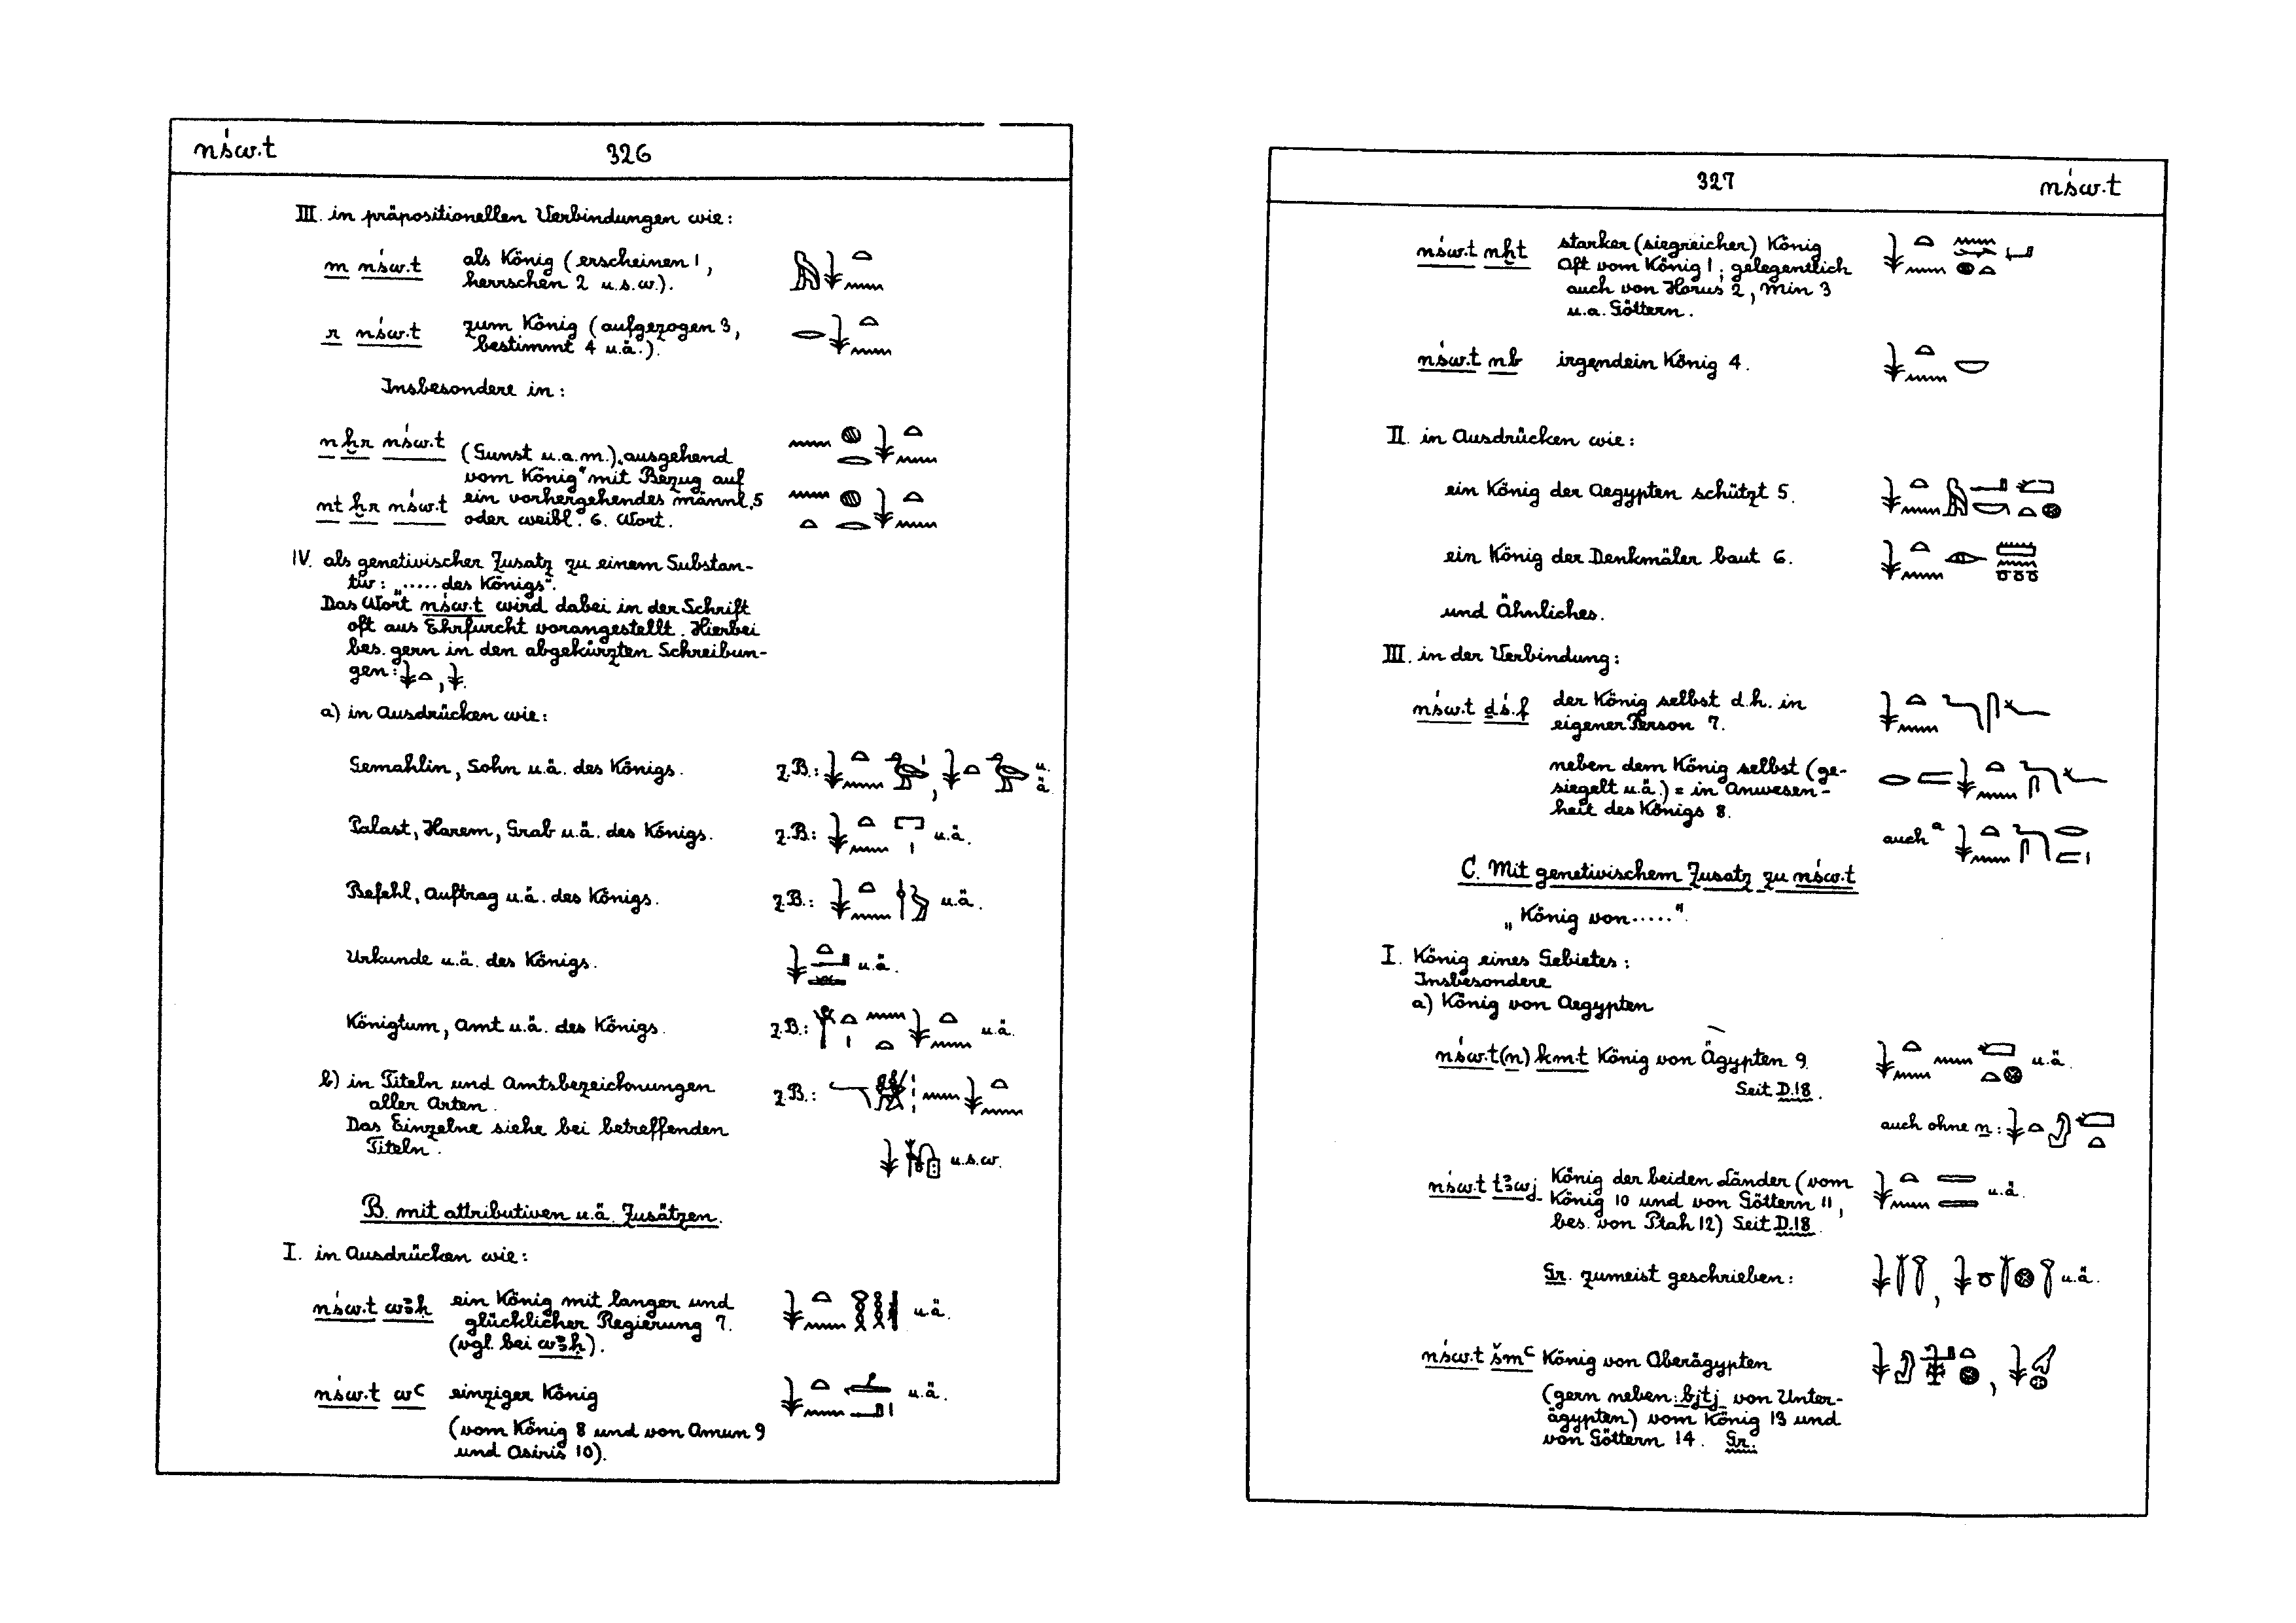 nśw.t 326
III. in präpositionellen Verbindungen wie:
m nśw.t als König (erscheinen 1,
herrschen 2 u.s.w.).
r nśw.t zum König (aufgezogen 3,
bestimmt 4 u.ä.).
Insbesondere in:
n ḫr nśw.t (Gunst u.a.m.) „ausgehend
vom König“ mit Bezug auf
nt ḫr nśw.t ein vorhergehendes männl. 5
oder weibl. 6. Wort.
IV. als genetivischer Zusatz zu einem Substan-
tiv: „..... des Königs“.
Das Wort nśw.t wird dabei in der Schrift
oft aus Ehrfurcht vorangestellt. Hierbei
bes. gern in den abgekürzten Schreibun-
gen: 𓇓𓏏, 𓇓.
a) in Ausdrücken wie:
Gemahlin, Sohn u.ä. des Königs. z.B.: u.ä
Palast, Harem, Grab u.ä. des Königs. z.B.: u.ä.
Befehl, Auftrag u.ä. des Königs. z.B.: u.ä.
Urkunde u.ä. des Königs. u.ä.
Königtum, Amt u.ä. des Königs. z.B.: u.ä.
b) in Titeln und Amtsbezeichnungen z.B.:
aller Arten.
Das Einzelne siehe bei betreffenden
Titeln. u.s.w.
B. mit attributiven u.ä. Zusätzen.
I. in Ausdrücken wie:
nśw.t wȝḥ ein König mit langer und u.ä.
glücklicher Regierung 7.
(vgl. bei wȝḥ).
nśw.t wꜥ einziger König u.ä.
(vom König 8 und von Amun 9
und Osiris 10).
327 nśw.t
nśw.t nḫt starker (siegreicher) König
Oft vom König 1; gelegentlich
auch von Horus 2, Min 3
u.a. Göttern.
nśw.t nb irgendein König 4.
II. in Ausdrücken wie:
ein König der Aegypten schützt 5.
ein König der Denkmäler baut 6.
und Ähnliches.
III. in der Verbindung:
nśw.t ḏś.f der König selbst d.h. in
eigener Person 7.
neben dem König selbst (ge-
siegelt u.ä.) = in Anwesen-
heit des Königs 8.
auch a
C. Mit genetivischem Zusatz zu nśw.t
„König von.....“
I. König eines Gebietes:
Insbesondere
a) König von Aegypten
nśw.t (n) kmt König von Ägypten 9. u.ä.
Seit D.18.
auch ohne n:
nśw.t tȝwj König der beiden Länder (vom u.ä.
König 10 und von Göttern 11,
bes. von Ptah 12) Seit D.18.
Gr. zumeist geschrieben: u.ä.
nśw.t šmꜥ König von Oberägypten
(gern neben: bjtj von Unter-
ägypten) vom König 13 und
von Göttern 14. Gr.